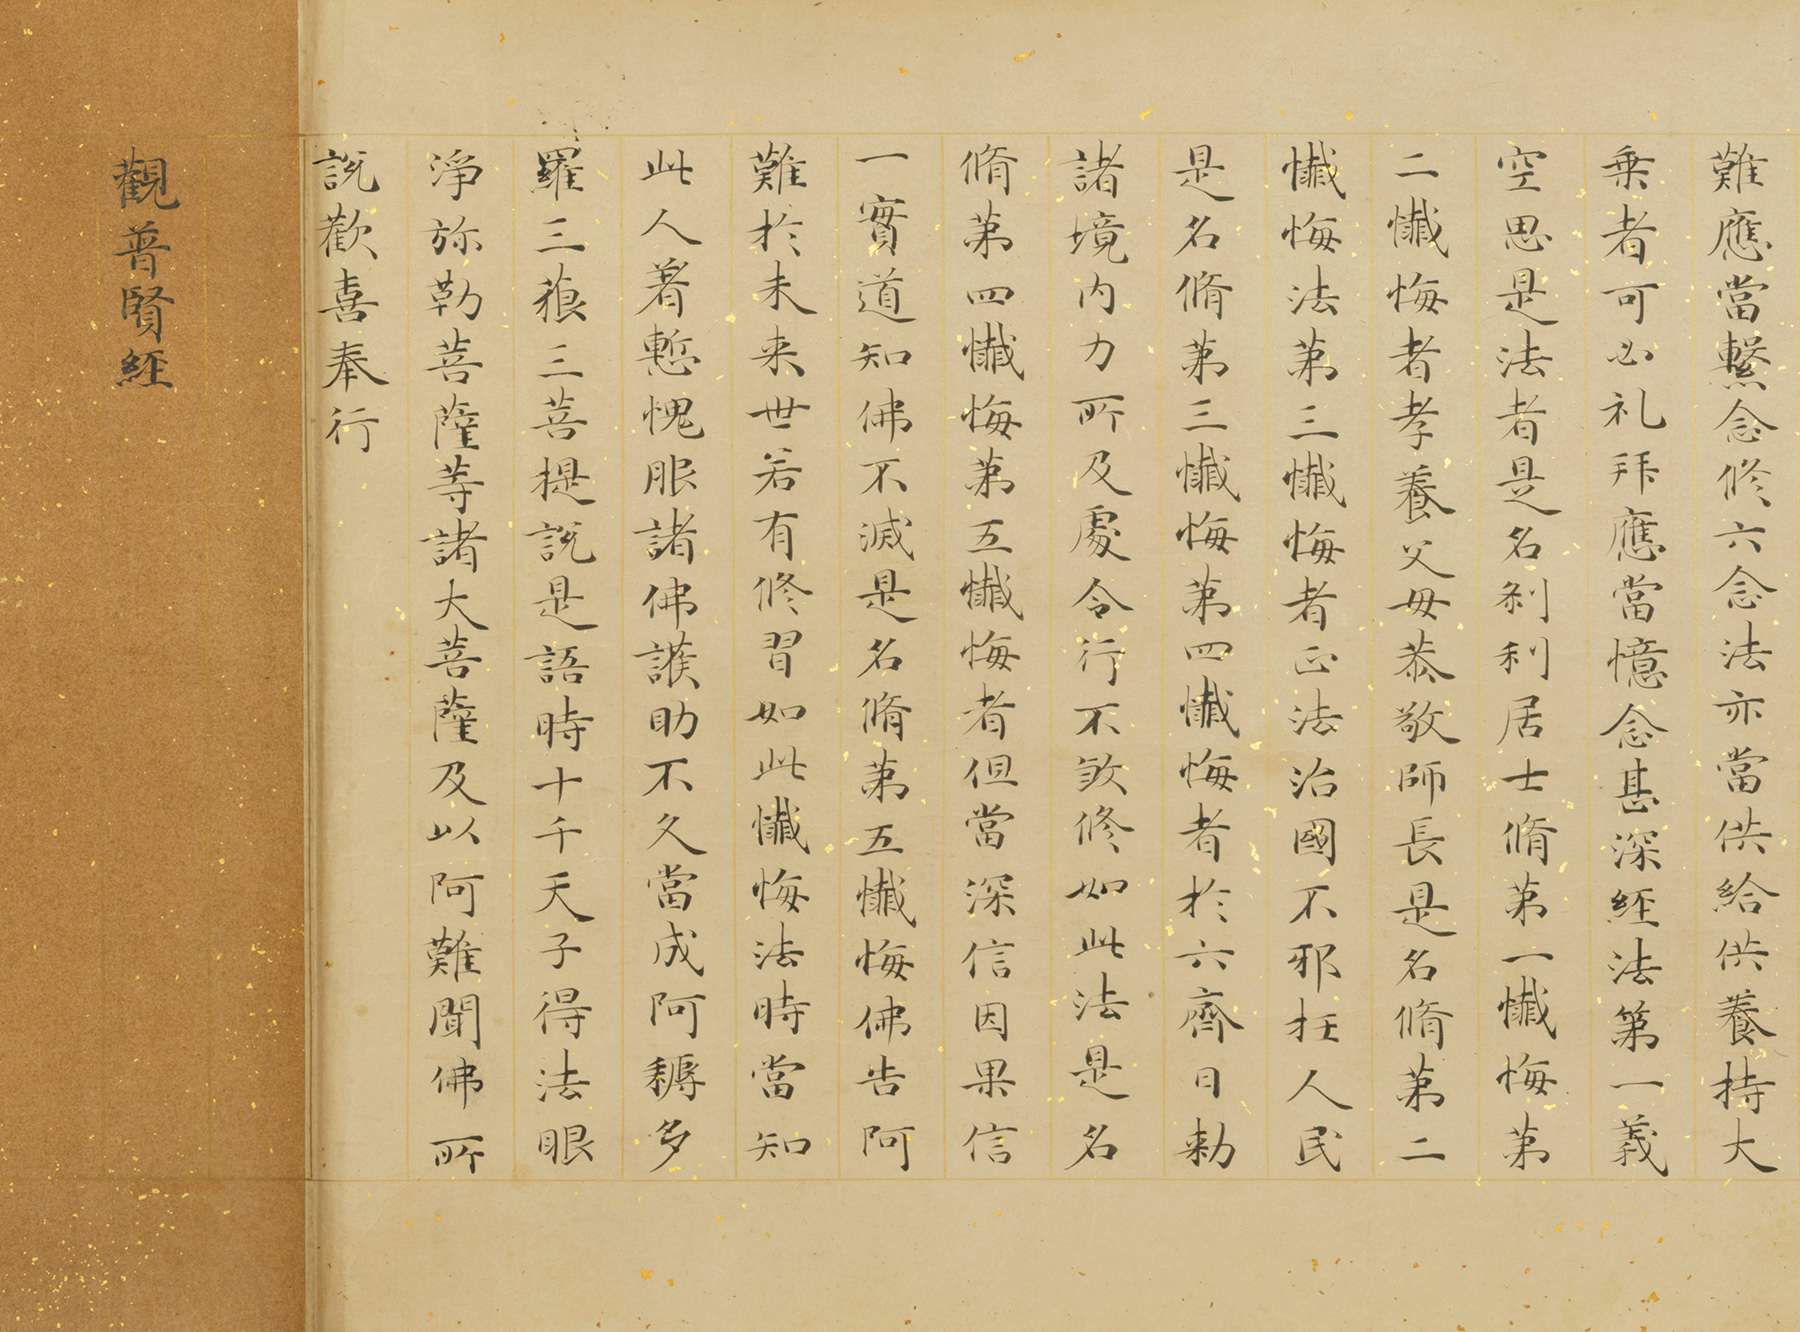 難應當繫念修六念法亦當供給供養持大
乗者可必礼拜應當憶念甚深經法第一義
空思是法者是名刹利居士脩第一懺悔第
二懺悔者孝養父母恭敬師長是名脩第二
懺悔法第三懺悔者正法治國不邪枉人民
是名脩第三懺悔第四懺悔者於六齋日勅
諸境内力所及處令行不煞修如此法是名
脩第四懺悔第五懺悔者但當深信因果信
一實道知佛不滅是名脩第五懺悔佛告阿
難於未来世若有修習如此懺悔法時當知
此人著慙愧服諸佛護助不久當成阿耨多
羅三藐三菩提說是語時十千天子得法眼
淨弥勒菩薩等諸大菩薩及以阿難聞佛所
說歡喜奉行
觀普賢經